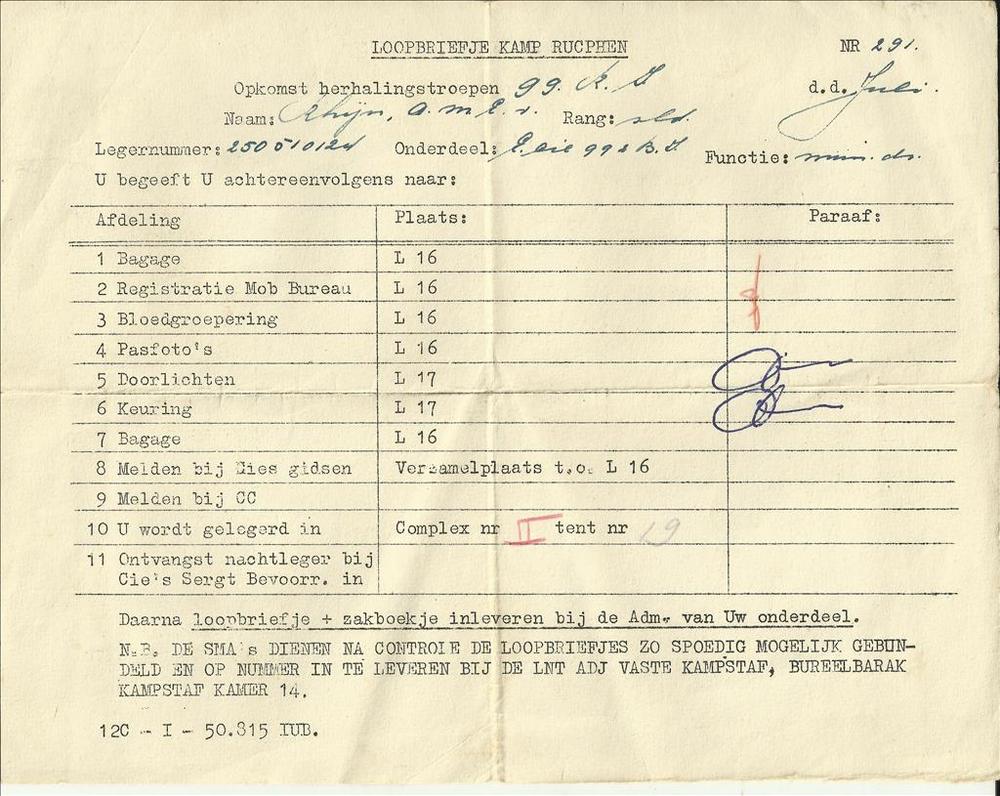 LOOPBRIEFJE KAMP RUCPHEN NR 291.
Opkomst herhalingstroepen 99. d.d. Juli.
Naam: Rhijn, A.M.E. v. Rang: sld.
Legernummer: 250510124 Onderdeel: 99 Functie:
U begeeft U achtereenvolgens naar:
Afdeling Plaats: Paraaf:
1 Bagage L 16
2 Registratie Mob Bureau L 16
3 Bloedgroepering L 16
4 Pasfoto's L 16
5 Doorlichten L 17
6 Keuring L 17
7 Bagage L 16
8 Melden bij Cies gidsen Verzamelplaats t.o. L 16
9 Melden bij CC
10 U wordt gelegerd in Complex nr II tent nr 19
11 Ontvangst nachtleger bij
Cie's Sergt Bevoorr. in
Daarna loopbriefje + zakboekje inleveren bij de Adm. van Uw onderdeel.
N.B. DE SMA's DIENEN NA CONTROIE DE LOOPBRIEFJES ZO SPOEDIG MOGELIJK GEBUN-
DELD EN OP NUMMER IN TE LEVEREN BIJ DE LNT ADJ VASTE KAMPSTAF, BUREELBARAK
KAMPSTAF KAMER 14.
12C - I - 50.815 IUB.